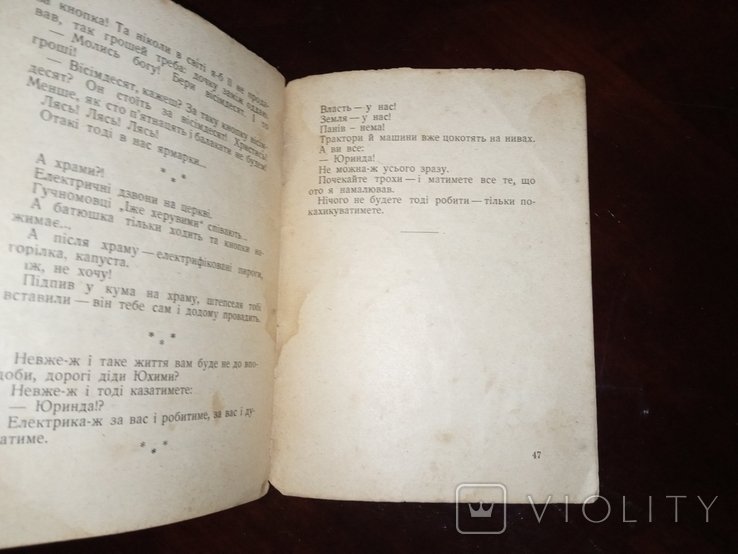 за кнопка! Та ніколи в світі я-б її не прода-
вав, так грошей треба: дочку заміж оддаю.
— Молись богу! Бери вісімдесят. І то
гроші!
— Вісімдесят, кажеш? За таку кнопку вісім-
десят? Он стоїть за вісімдесят! Христись!
Менше, як сто п'ятнадцять і балакати не будем!
Лясь! Лясь! Лясь!
Отакі тоді в нас ярмарки...
* * *
А храми?!
Електричні дзвони на церкві.
Гучномовці „Іже херувими" співають...
А батюшка тільки ходить та кнопки на-
жимає...
А після храму — електрифіковані пироги,
горілка, капуста.
їж, не хочу!
Підпив у кума на храму, штепселя тобі
вставили — він тебе сам і додому провадить.
* * *
Невже-ж і таке життя вам буде не до впо-
доби, дорогі діди Юхими?
Невже-ж і тоді казатимете:
— Юринда!?
Електрика-ж за вас і робитиме, за вас і ду-
атиме.
* * *
Власть — у нас!
Земля — у нас!
Панів — нема!
Трактори й машини вже цокотять на нивах.
А ви все:
— Юринда!
Не можна-ж усього зразу.
Почекайте трохи — і матимете все те, що
ото я намалював.
Нічого не будете тоді робити — тільки по-
кахикуватимете.
47
VIOLITY